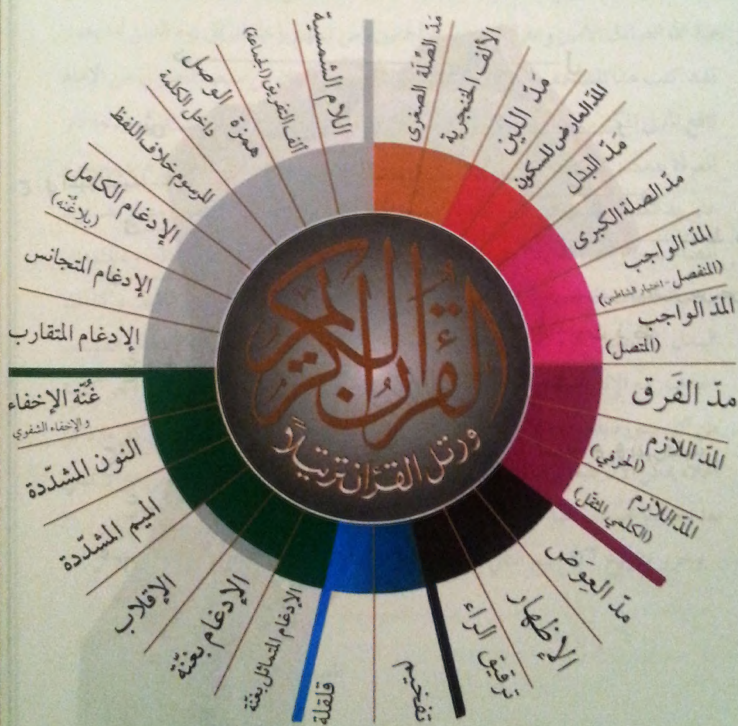 القرآن الكريم
ورتل القرآن ترتيلاً
مَدّ الصِّلَة الصغرى
الألف الخنجرية
مَدّ اللين
المدّ العارض للسكون
مدّ البَدَل
مدّ الصلة الكبرى
المدّ الواجب
(المنفصل - اختيار الشاطبي)
المدّ الواجب
(المتصل)
مدّ الفَرق
المدّ اللازم
(الحرفي)
المدّ اللازم
(الكلمي المثقل)
مدّ العِوَض
الإظهار
ترقيق الراء
تفخيم
قلقلة
الإدغام المتماثل بغنّة
الإدغام بغنّة
الإقلاب
الميم المشدّدة
النون المشدّدة
غُنّة الإخفاء
والإخفاء الشفوي
الإدغام المتقارب
الإدغام المتجانس
الإدغام الكامل
(بلا غُنّة)
المرسوم خلاف اللفظ
همزة الوصل
داخل الكلمة
ألف التفريق (الجماعة)
اللام الشمسية